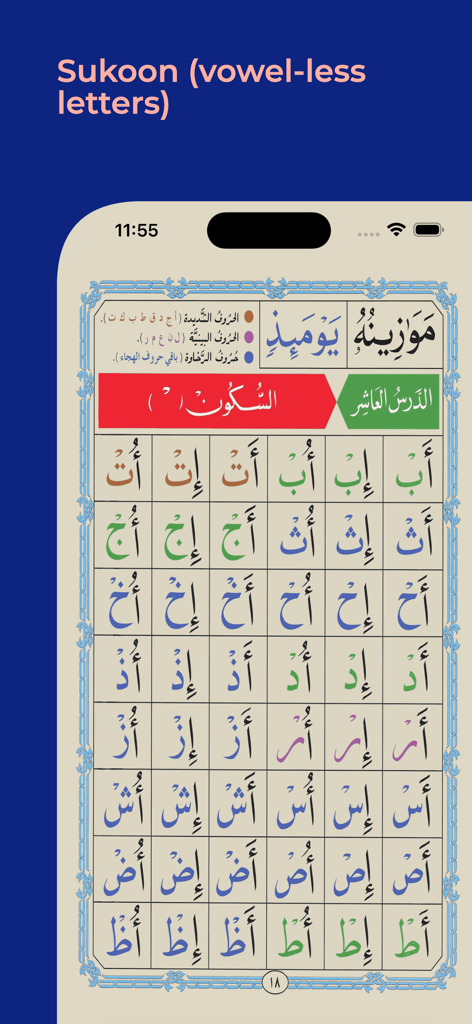 Sukoon (vowel-less
letters)
11:55
مَوَٰزِينُهُۥ
يَوْمَئِذٍ
الحُرُوفُ الشَّدِيدة (أ ج د ق ط ب ك ت).
الحُرُوفُ البَيْنِيَّة (ل ن ع م ر).
حُرُوفُ الرَّخَاوة (باقي حروف الهجاء).
الدَّرسُ العَاشِر
السُّكُونْ ( ْ )
أَبْ إِبْ أُبْ أَتْ إِتْ أُتْ
أَثْ إِثْ أُثْ أَجْ إِجْ أُجْ
أَحْ إِحْ أُحْ أَخْ إِخْ أُخْ
أَدْ إِدْ أُدْ أَذْ إِذْ أُذْ
أَرْ إِرْ أُرْ أَزْ إِزْ أُزْ
أَسْ إِسْ أُسْ أَشْ إِشْ أُشْ
أَصْ إِصْ أُصْ أَضْ إِضْ أُضْ
أَطْ إِطْ أُطْ أَظْ إِظْ أُظْ
١٨